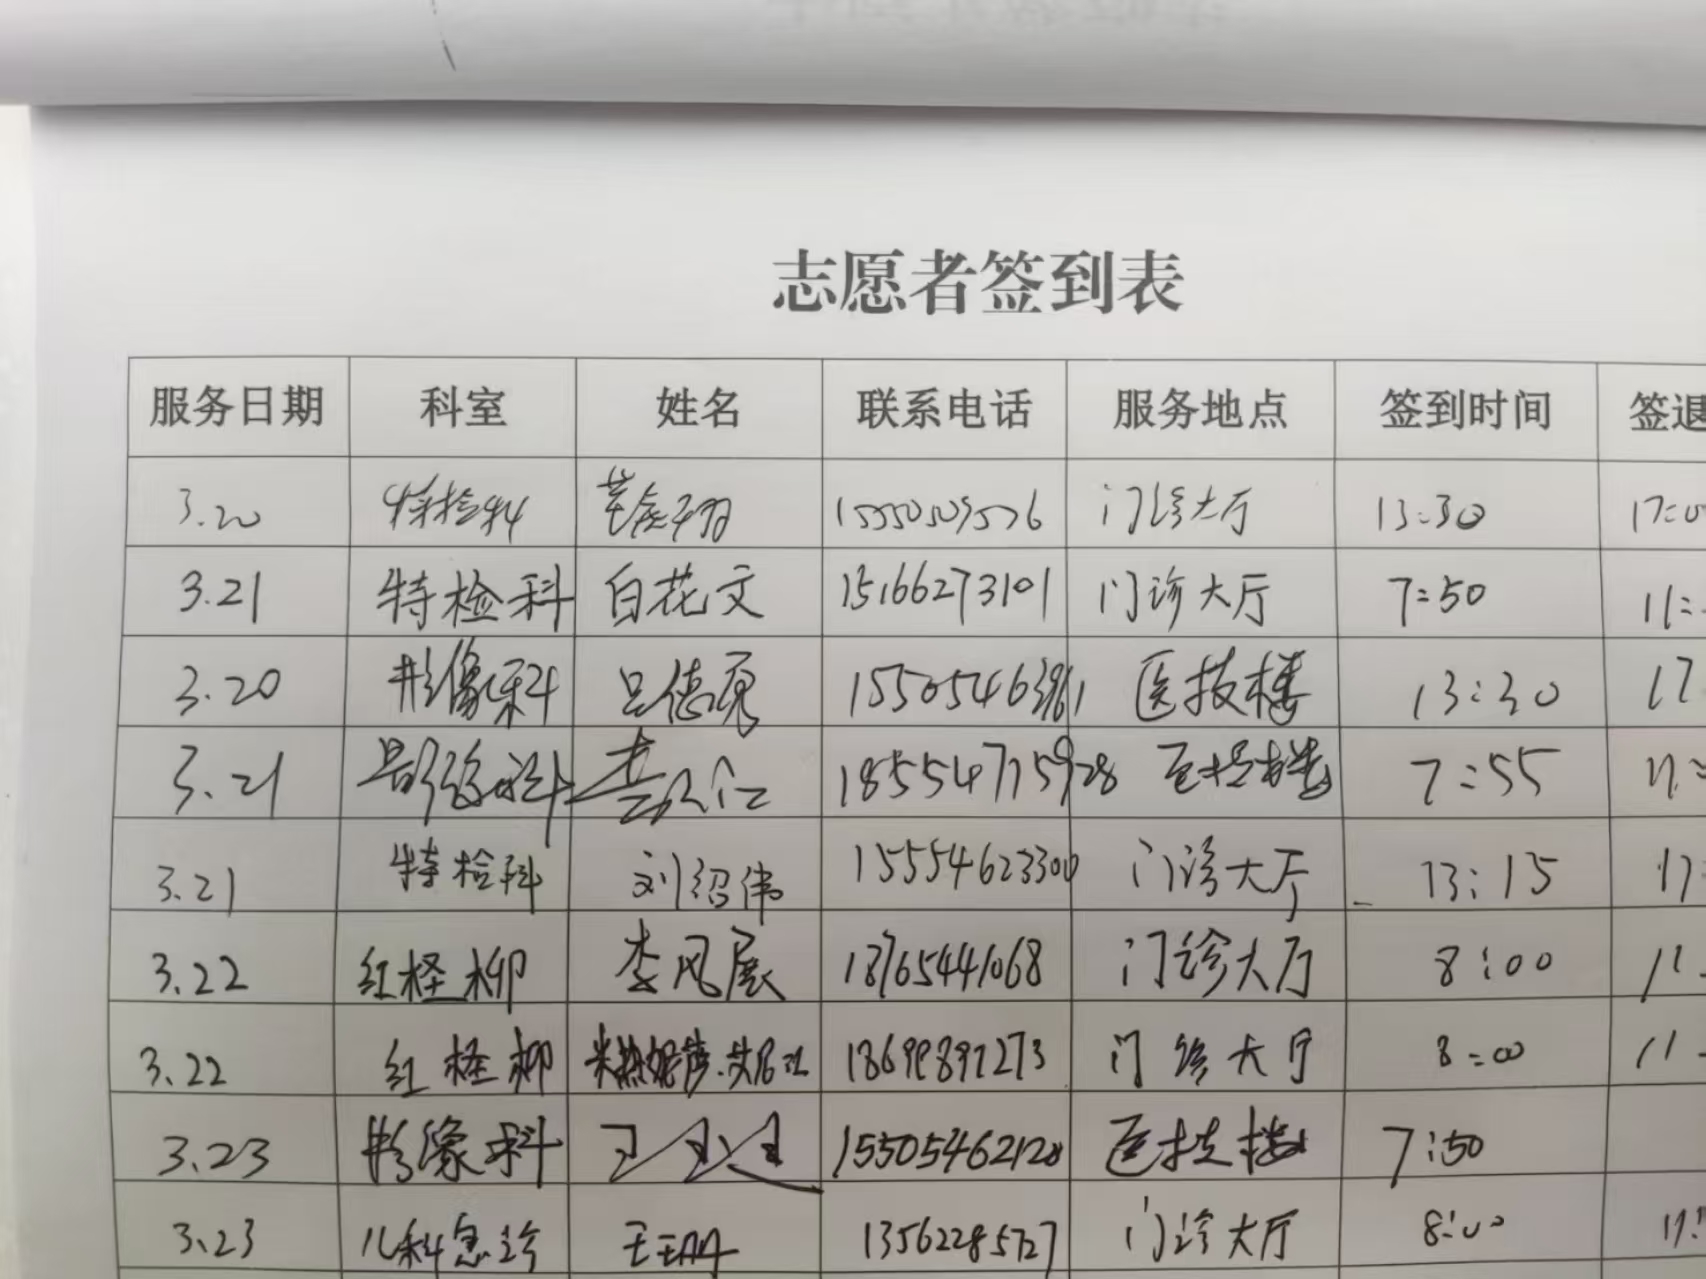 志愿者签到表
服务日期 科室 姓名 联系电话 服务地点 签到时间 签退
3.20 特检科 门诊大厅 13:30 17:0
3.21 特检科 白花文 15166273101 门诊大厅 7:50 11:
3.20 影像科 吕德勇 医技楼 13:30 17
3.21 影像科 医技楼 7:55
3.21 特检科 刘绍伟 15554623300 门诊大厅 13:15 17:
3.22 红柽柳 李风展 18765441068 门诊大厅 8:00 11
3.22 红柽柳 门诊大厅 8:00 11
3.23 影像科 医技楼 7:50
3.23 儿科急诊 13562285727 门诊大厅 8:00